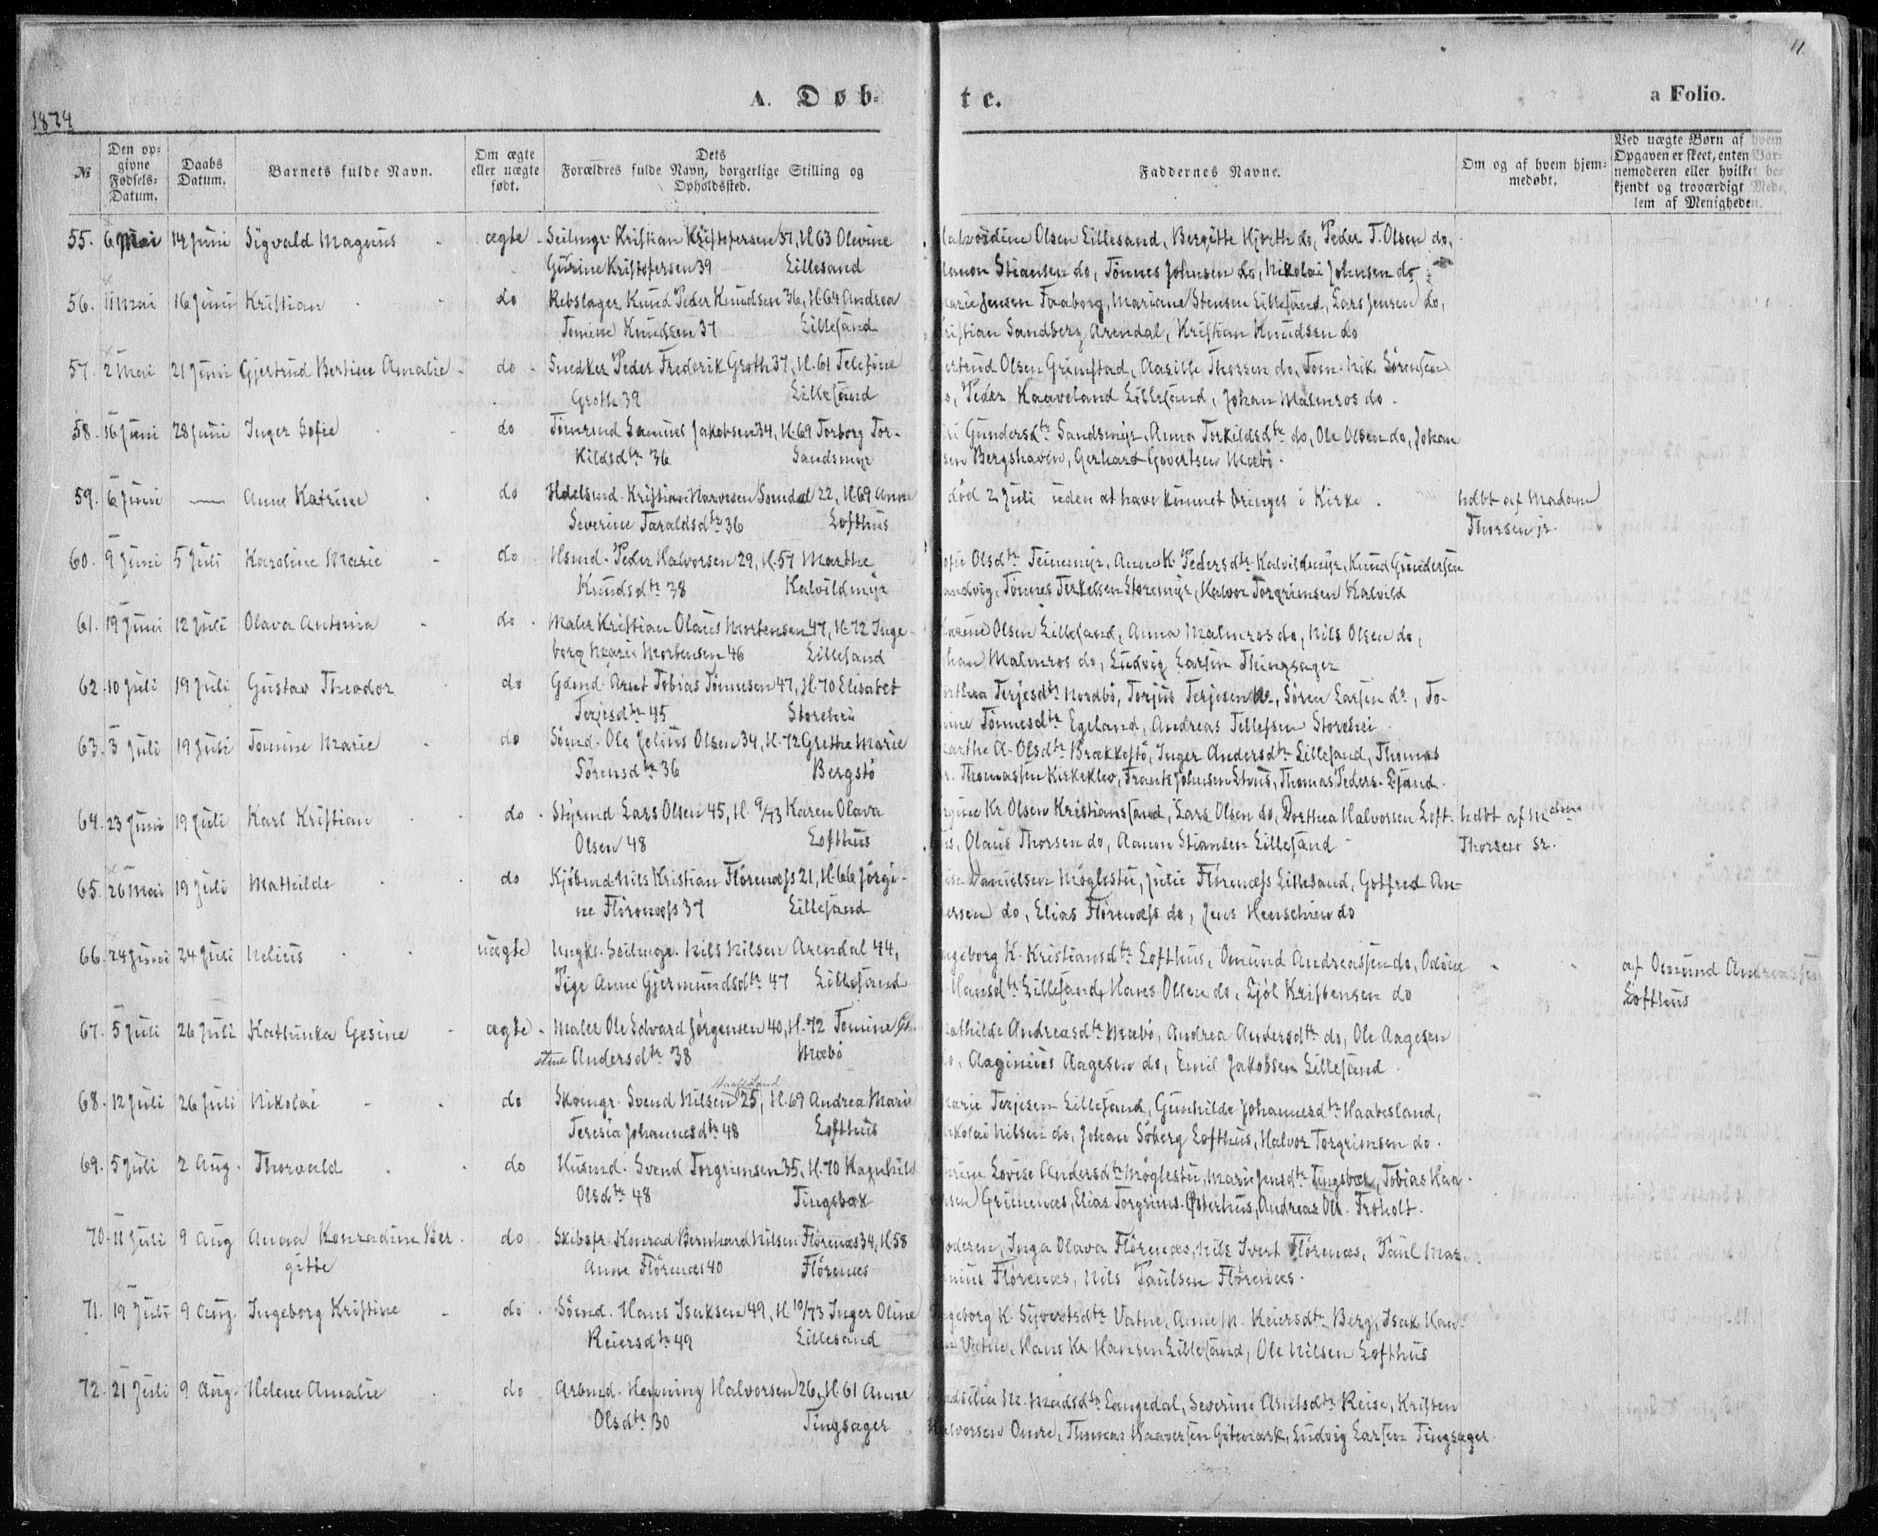 11
1874
A. Døb-
te.
a Folio.
№
Den op-
givne
Fødsels-
Datum.
Daabs
Datum.
Barnets fulde Navn.
Om ægte
eller uægte
født.
Dets
Forældres fulde Navn, borgerlige Stilling og
Opholdssted.
Faddernes Navne.
Om og af hvem hjem-
medøbt.
Ved uægte Børn af hvem
Opgaven er skeet, enten Bar-
nemoderen eller hvilket be-
kjendt og troværdigt Med-
lem af Menigheden.
55. 6 Mai 14 Juni Sigvald Magnus - ægte - Seilmgr. Kristian Kristofersen 37, H. 63 Olevine
Gurine Kristofersen 39 Lillesand
Olsen Lillesand, Bergitte do, Peder T. Olsen do,
Stiansen do, Tönnes Johnsen do, Nikolai Johnsen do
56. 11 Mai 16 Juni Kristian - - do Rebslager Knud Peder Knudsen 36, H. 64 Andrea
Tomine Knudsen 37 Lillesand
Jensen Faaborg, Mariane Stensen Lillesand, Lars Jensen do,
Sandberg Arendal, Kristian Knudsen do
57. 2 Mai 21 Juni Gjertrud Bertine Amalie - do - Snedker Peder Frederik Groth 37, H. 61 Telefine
Groth 39 Lillesand
Olsen Grimstad, Aasille Thorsen do, Tom. Nik. Sörensen
Peder Kaaveland Lillesand, Johan Malmros do.
58. 16 Juni 28 Juni Inger Sofie - - do Tömrmd Samuel Jakobsen 34, H. 69 Torborg Tor-
kildsdtr 36 Sandsmyr
Gundersdtr Sandsmyr, Anna Torkildsdtr do, Ole Olsen do, Johan
Bergshaven, Gerhard Govertsen Mæbö.
59. 6 Juni — Anne Katrine - do Kristian Halvorsen 22, H. 69 Anne
Severine Taraldsdtr 36 Lofthus
död 2 Juli uden at have kunnet bringes i Kirke. hdbt af Madam
Thorsen jr.
60. 9 Juni 5 Juli Karoline Marie - do Hsmd. Peder Halvorsen 29, H. 57 Marthe
Knudsdtr 38 Kalvildmyr
Olsdtr Anne K. Pedersdtr Kalvildmyr, Knud Gundersen
Tönnes Terkelsen Storemyr, Halvor Torgrimsen Kalvild
61. 19 Juni 12 Juli Olava Antonia - do. Maler Kristian Olaus Mortensen 47, H. 72 Inge-
borg Marie Mortensen 46 Lillesand
Olsen Lillesand, Anna Malmros do, Nils Olsen do,
Malmros do, Ludvig Larsen Thingsager
62. 10 Juli 19 Juli Gustav Theodor - do Gdmd. Arnt Tobias Tönnesen 47, H. 70 Elisabet
Terjesdtr 45 Storehei
Terjesdtr Nordbö, Torjus Terjesen do, Sören Larsen do, To-
Tönnesdtr Egeland, Andreas Tellefsen Storehei
63. 3 Juli 19 Juli Tomine Marie - do Sömd. Ole Jelius Olsen 34, H. 72 Grethe Marie
Sörensdtr 36 Bergstö
A. Olsdtr Brækkestö, Inger Andersdtr Lillesand, Thomas
Thomassen Kirkeklev, Frants Johnsen Thomas Peders.
64. 23 Juni 19 Juli Karl Kristian - - do - Styrmd Lars Olsen 45, H. 9/73 Karen Olava
Olsen 48 Lofthus
Kr. Olsen Kristianssand, Lars Olsen do, Dorthea Halvorsen Loft- hdbt af Madame
Olaus Thorsen do, Aanon Stiansen Lillesand - Thorsen sr.
65. 26 Mai 19 Juli Mathilde - do Kjöbmd Nils Kristian Flörenæss 21, H. 66 Jörgi-
ne Flörenæss 37 Lillesand
Danielsen Möglestu, Julie Flörenæss Lillesand, Gotfred An-
dersen do, Elias Flörenæss do, Jens Henschien do
66. 24 Juni 24 Juli Nelius - - uægte Ungkl. Seilmgr. Nils Nilsen Arendal 44,
Pige Anne Gjermundsdtr 47 Lillesand
K. Kristiansdtr Lofthus, Omund Andreassen do,
Hansdtr Lillesand, Hans Olsen do, Kristensen do
af Omund Andreassen
Lofthus
67. 5 Juli 26 Juli Kathinka Gesine - ægte - Maler Ole Edvard Jörgensen 40, H. 72 Tomine
Andersdtr 38 Mæbö
Andreasdtr Mæbö, Andrea Andersdtr do, Ole Aagesen
Aaginius Aagesen do, Emil Jakobsen Lillesand
68. 12 Juli 26 Juli Nikolai - - do Skomgr. Svend Nilsen 25, H. 69 Andrea Marie
Teresia Johannesdtr 48 Lofthus
Terjesen Lillesand, Gunhilde Johannesdtr Haabesland,
Nilsen do, Johan Söberg Lofthus, Halvor Torgrimsen do.
69. 5 Juli 2 Aug. Thorvald - - do Husmd. Svend Torgrimsen 35, H. 70 Ragnhild
Olsdtr 48 Tingsbæk
Lovise Andersdtr Möglestu, Marie Jensdtr Tingsbæk, Tobias
Grimenæs, Elias Torgrims. Österhus, Andreas Ols. Froholt.
70. 11 Juli 9 Aug Anna Konradine Ber- do. Skibsfr. Konrad Bernhard Nilsen Flörenæs 34, H. 58
gitte Anne Flörenæs 40 Flörenæs
Inga Olava Flörenæs, Nils Ivert Flörenæs, Paul Mar-
Flörenæs, Nils Paulsen Flörenæs.
71. 19 Juli 9 Aug. Ingeborg Kristine - do - Sömd. Hans Isaksen 49, H. 10/73 Inger Oline
Reiersdtr 49 Lillesand
K. Syvertsdtr Vatne, Anne M. Reiersdtr Berg, Isak Han-
Vatne, Hans Kr. Hansen Lillesand, Ole Nilsen Lofthus
72. 21 Juli 9 Aug. Helene Amalie - do Arbmd. Henning Halvorsen 26, H. 61 Anne
Olsdtr 30 Tingsager
M. Madsdtr Langedal, Severine Arntsdtr Reise, Kristen
Halvorsen Omre, Thomas Haaversen Götemark, Ludvig Larsen Tingsager